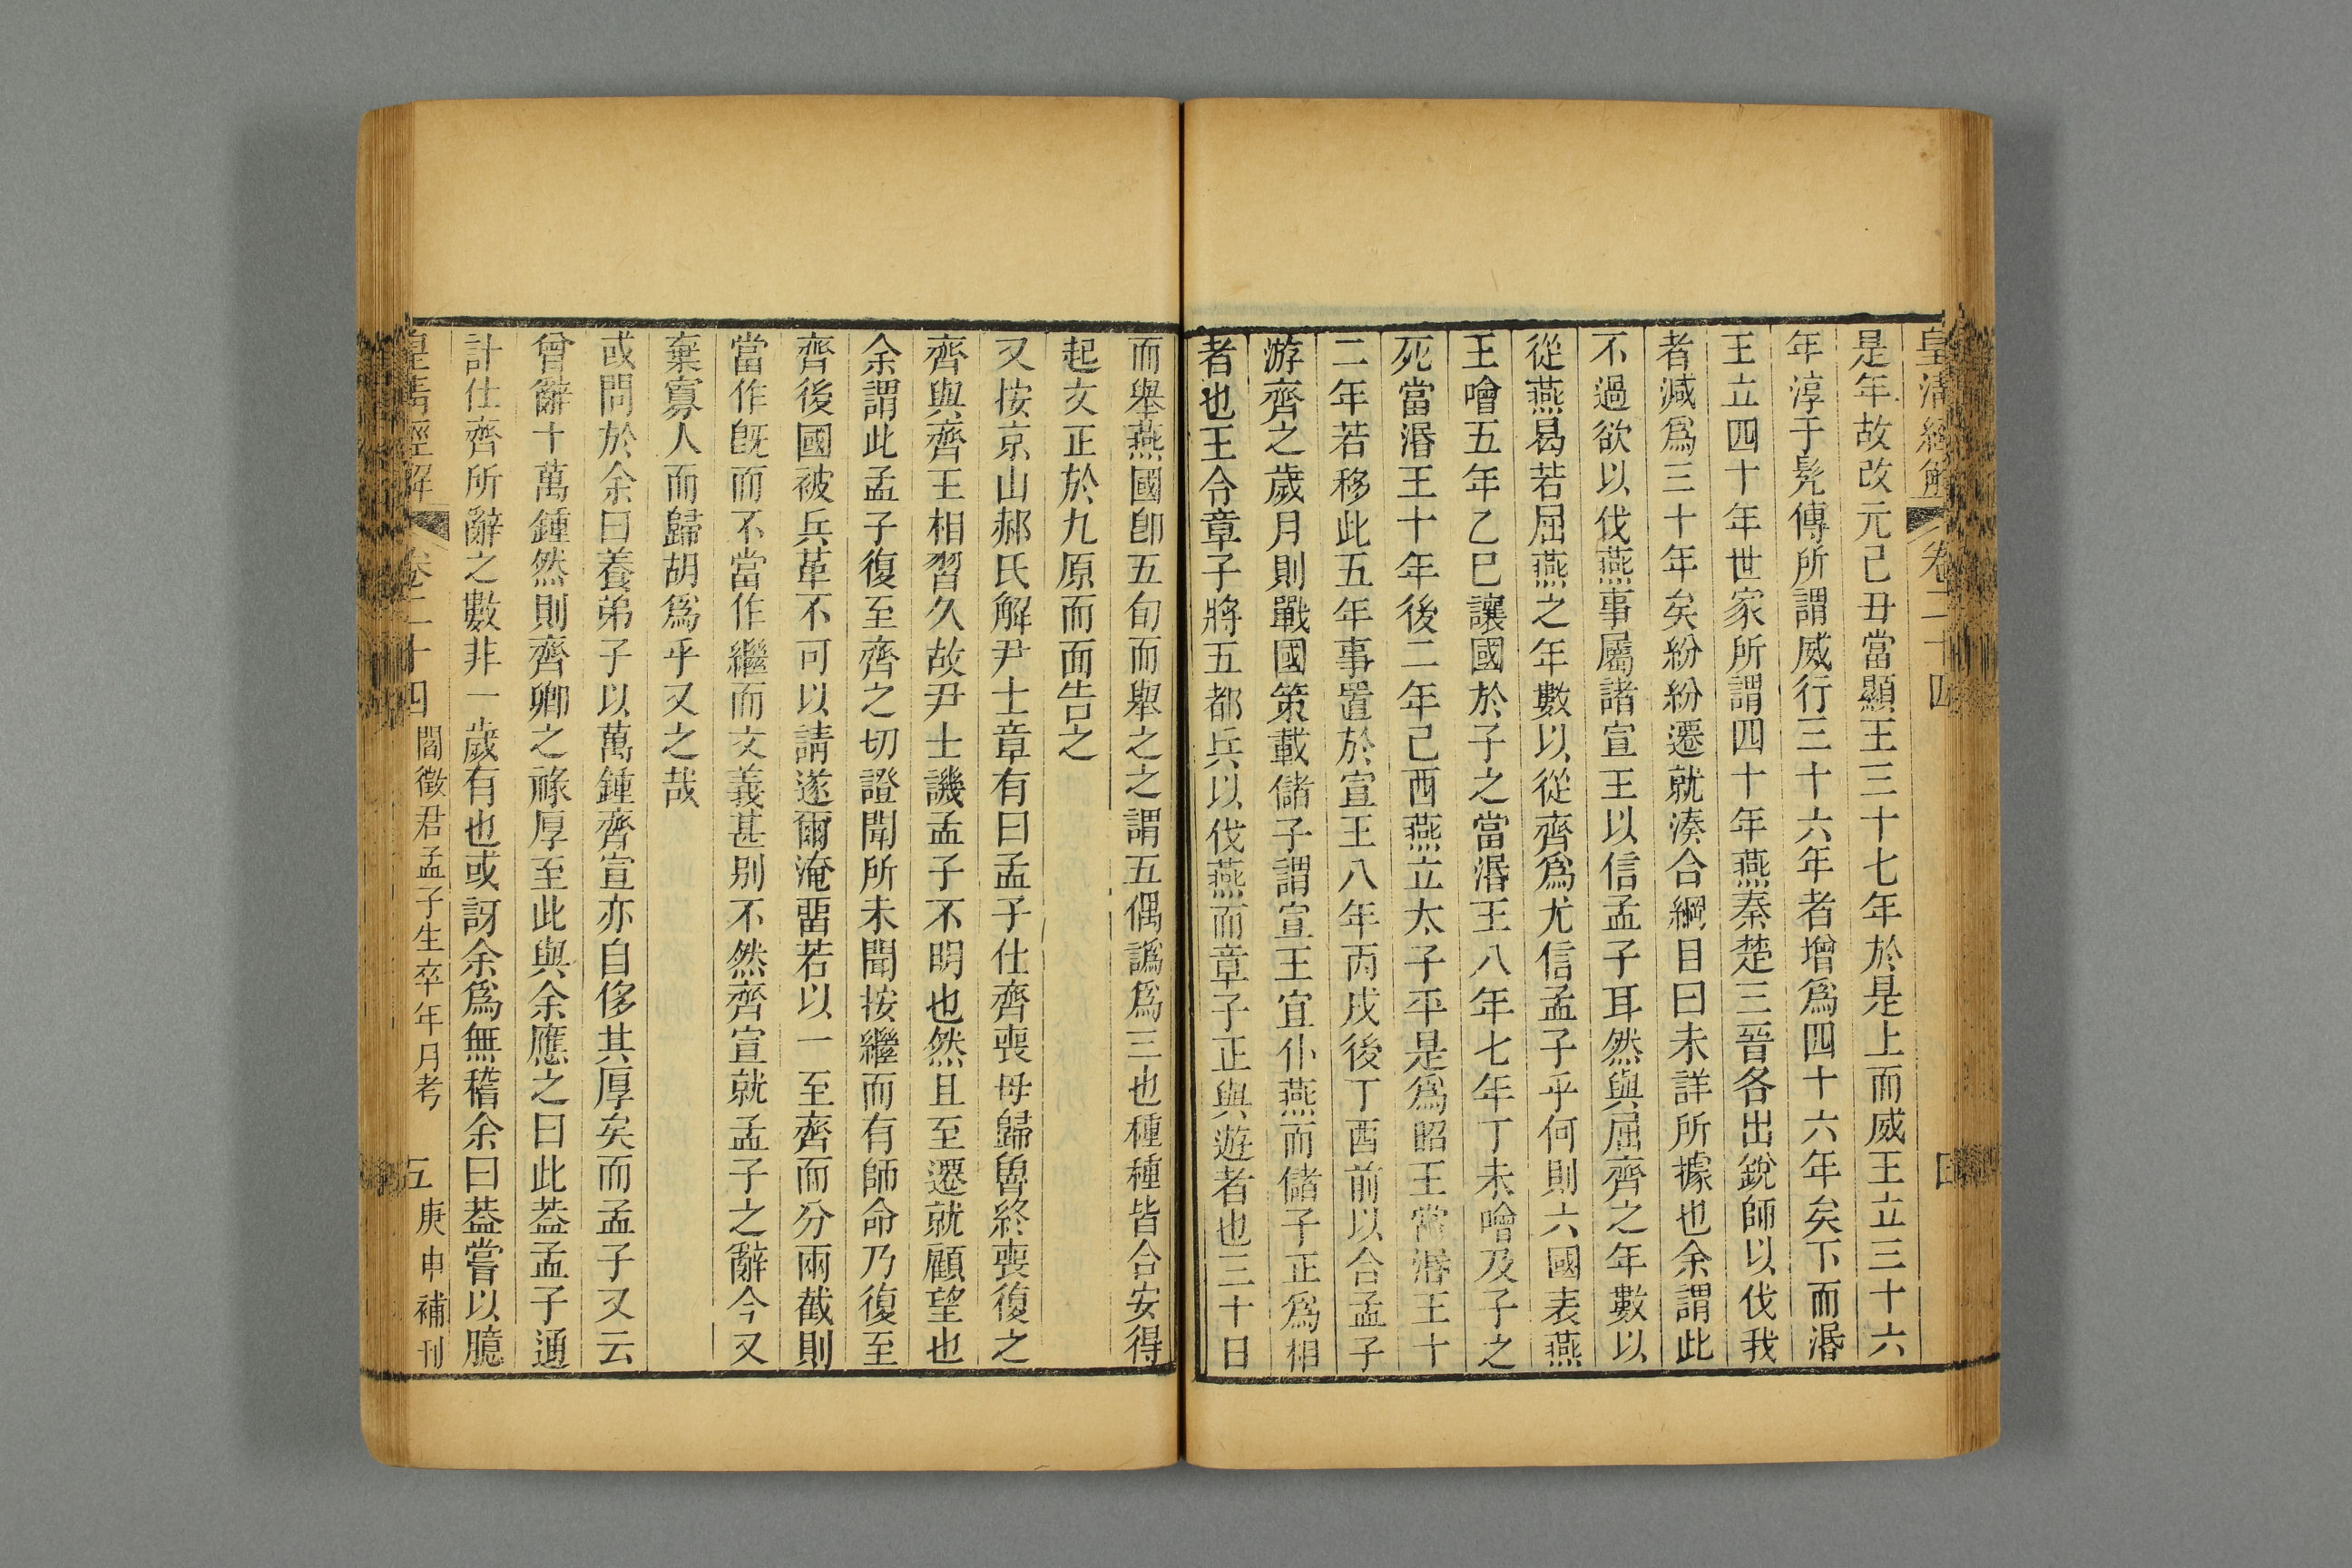 皇清經解 卷二十四 四
是年故改元己丑當顯王三十七年於是上而威王立三十六
年淳于髡傳所謂威行三十六年者增爲四十六年矣下而湣
王立四十年世家所謂四十年燕秦楚三晉各出銳師以伐我
者減爲三十年矣紛紛遷就湊合綱目曰未詳所據也余謂此
不過欲以伐燕事屬諸宣王以信孟子耳然與屈齊之年數以
從燕曷若屈燕之年數以從齊爲尤信孟子乎何則六國表燕
王噲五年乙巳讓國於子之當湣王八年七年丁未噲及子之
死當湣王十年後二年己酉燕立太子平是爲昭王當湣王十
二年若移此五年事置於宣王八年丙戌後丁酉前以合孟子
游齊之歲月則戰國策載儲子謂宣王宜仆燕而儲子正爲相
者也王令章子將五都兵以伐燕而章子正與遊者也三十日
而舉燕國卽五旬而舉之之謂五偶譌爲三也種種皆合安得
起文正於九原而面告之
又按京山郝氏解尹士章有曰孟子仕齊喪母歸魯終喪復之
齊與齊王相習久故尹士譏孟子不明也然且至遷就顧望也
余謂此孟子復至齊之切證聞所未聞按繼而有師命乃復至
齊後國被兵革不可以請遂爾淹畱若以一至齊而分兩截則
當作旣而不當作繼而文義甚別不然齊宣就孟子之辭今又
棄寡人而歸胡爲乎又之哉
或問於余曰養弟子以萬鍾齊宣亦自侈其厚矣而孟子又云
曾辭十萬鍾然則齊卿之祿厚至此與余應之曰此葢孟子通
計仕齊所辭之數非一歲有也或訝余爲無稽余曰葢嘗以臆
皇清經解 卷二十四 閻徵君孟子生卒年月考 五 庚申補刊